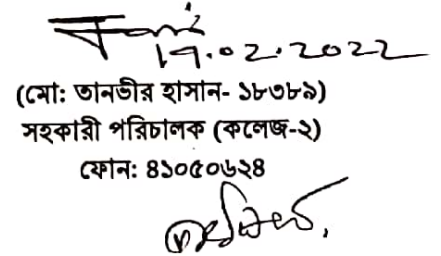 17.02.2022
(মো: তানভীর হাসান- ১৮৩৮৯)
সহকারী পরিচালক (কলেজ-২)
ফোন: ৪১০৫০৬২৪